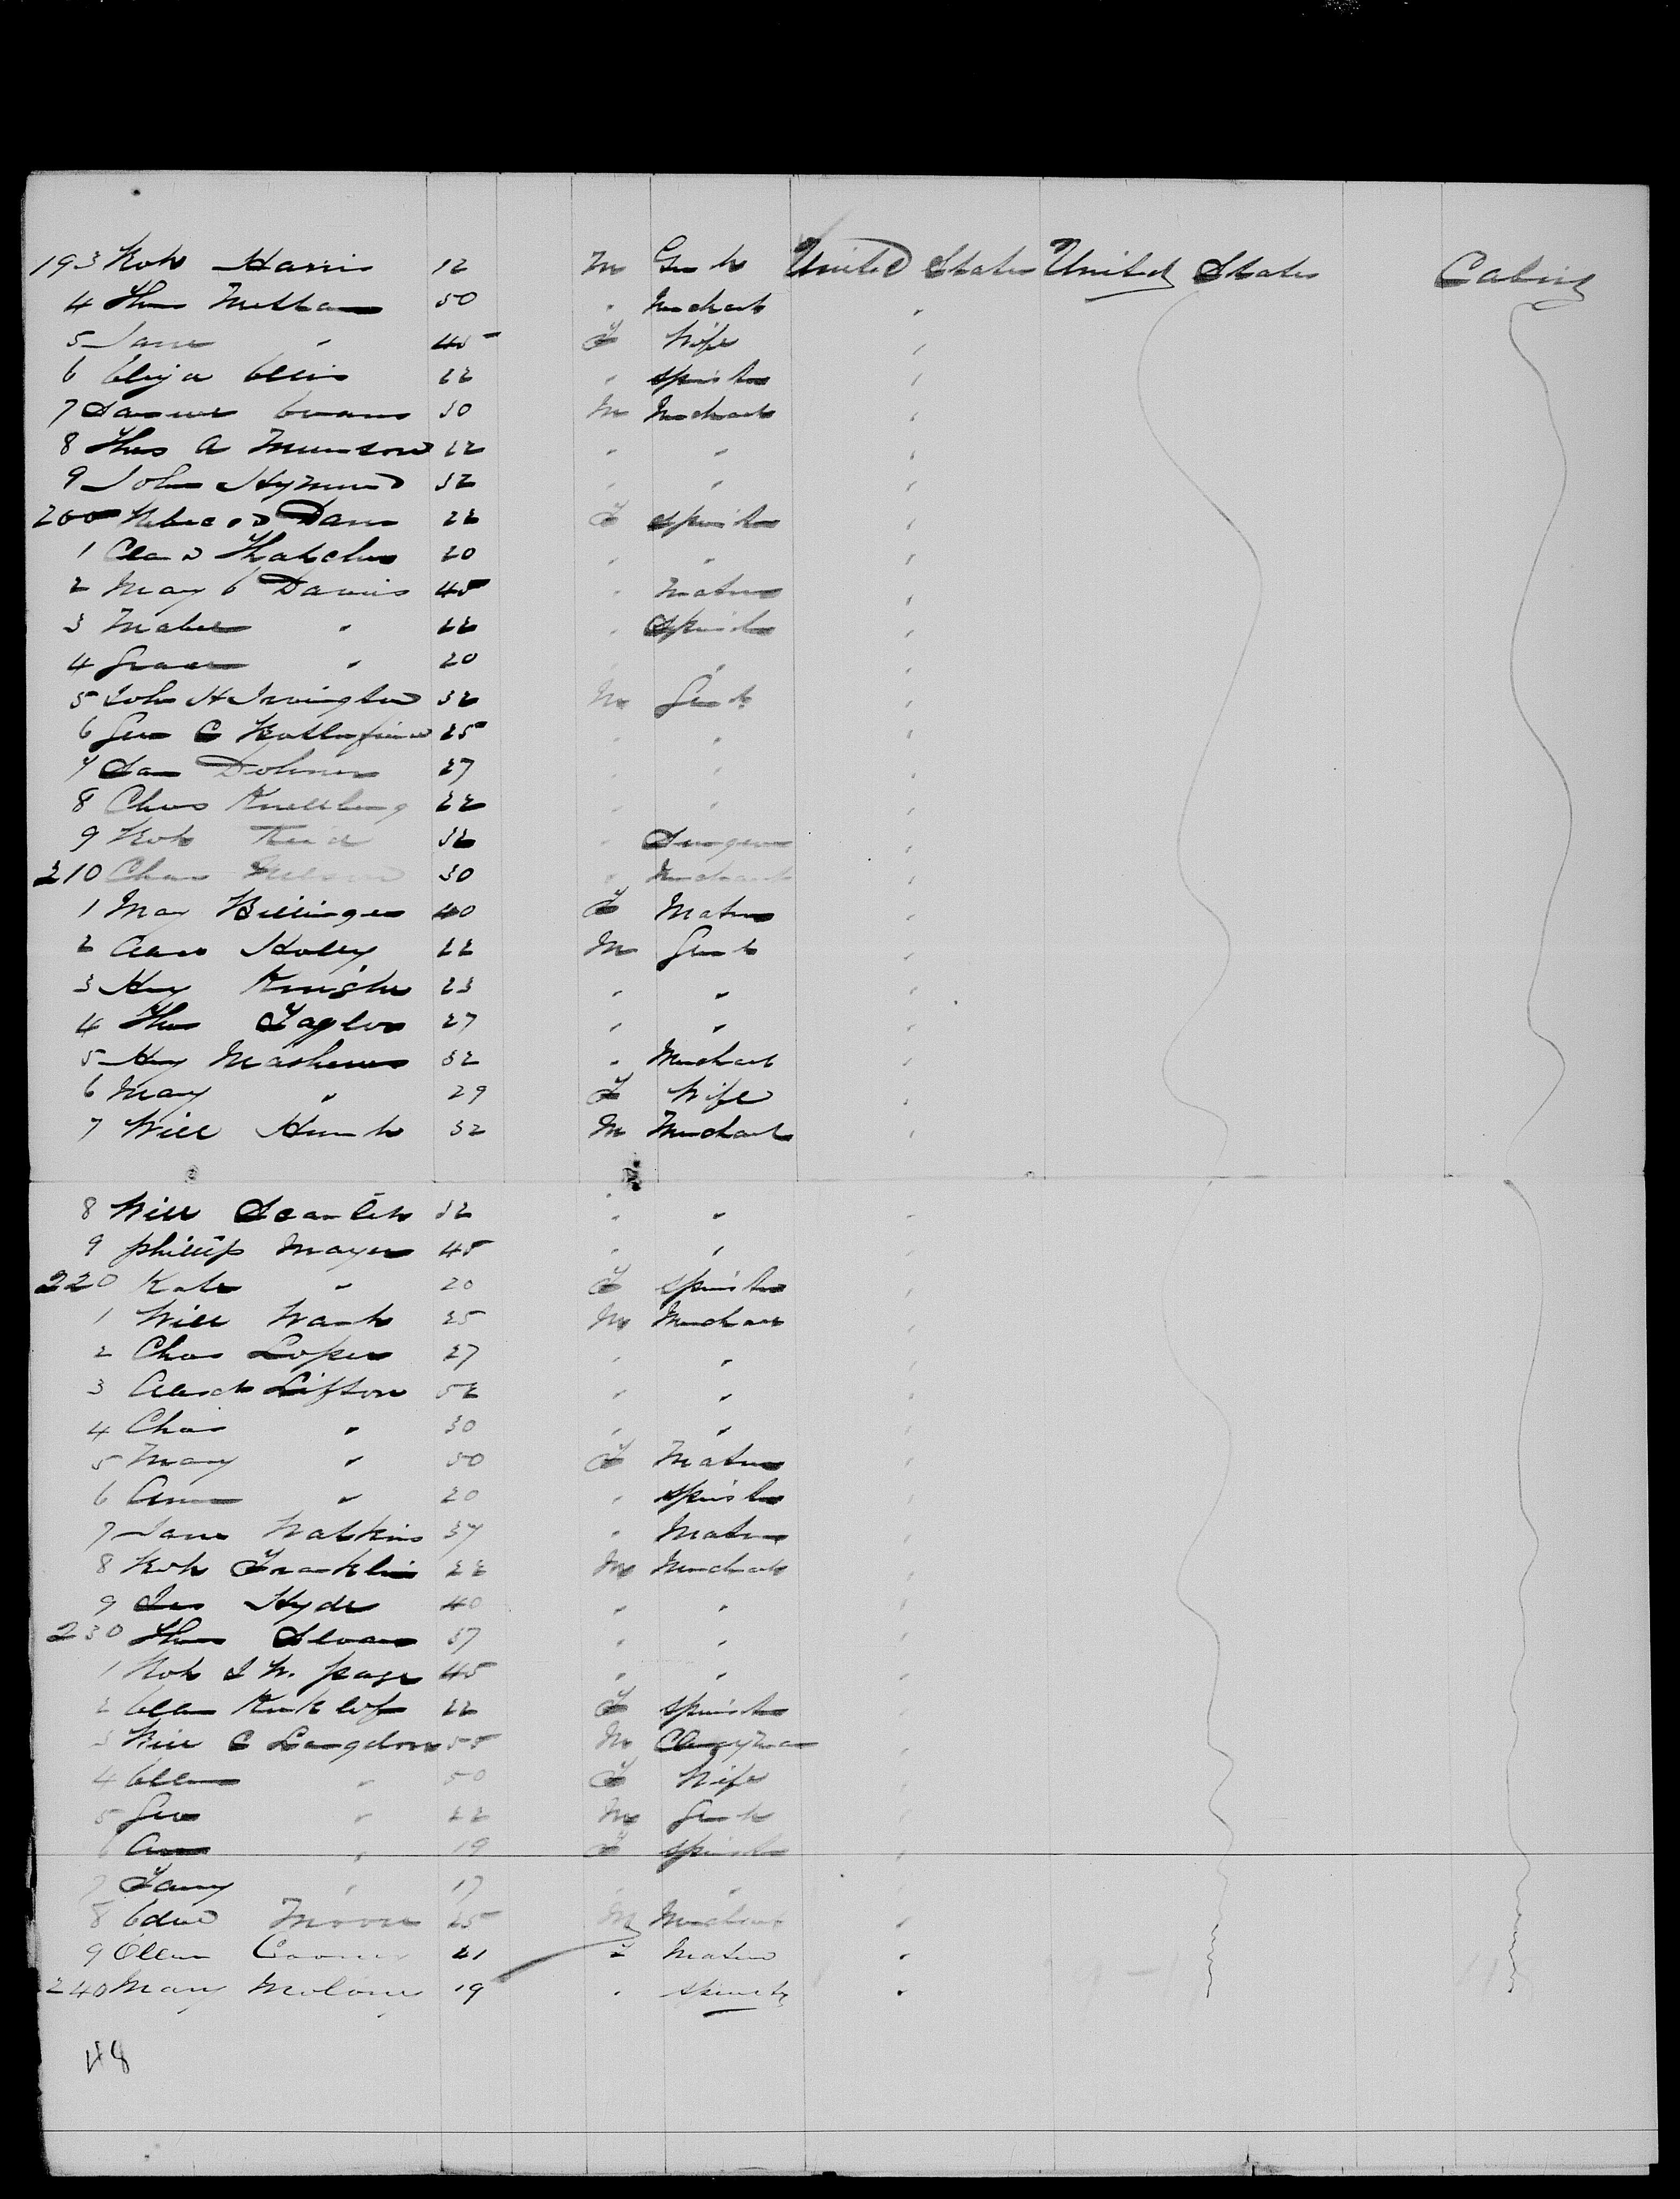 193 Robt Harris 12 M Gent United States United States Cabin
4 Thos 50 " Merchant "
5 Jane " 45 F Wife "
6 Eliza Ellis 22 " Spinster "
7 Samuel Evans 30 M Merchant "
8 Thos A Munson 22 " " "
9 John 32 " " "
200 Rebecca Dane 22 F Spinster "
1 Clara Thatcher 20 " " "
2 Mary E Davies 45 " Matron "
3 Mabel " 22 " Spinster "
4 Grace " 20 " " "
5 John H Irvington 32 M Gent "
6 Geo C 25 " " "
7 Sam 27 " " "
8 Chas 22 " " "
9 Robt Reid 32 " Surgeon "
210 Chas 30 " Merchant "
1 Mary Billinger 40 F Matron "
2 Holley 22 M Gent "
3 Hy Knight 23 " " "
4 Thos Taylor 27 " " "
5 Hy Mathews 32 " Merchant "
6 Mary " 29 F Wife "
7 Will Hunt 32 M Merchant "
8 Will Scarlett 32 " " "
9 Phillip Mayer 45 " " "
220 Kate " 20 F Spinster "
1 Will 25 M Merchant "
2 Chas Loper 27 " " "
3 Lifton 52 " " "
4 Chas " 30 " " "
5 Mary " 50 F Matron "
6 Ann " 20 " Spinster "
7 Jane Watkins 37 " Matron "
8 Robt Franklin 22 M Merchant "
9 Hyde 40 " " "
230 Thos Sloan 37 " " "
1 Robt page 45 " " "
2 Ellen 22 F Spinster "
3 Will C Langdon 55 M Clergyman "
4 Ellen " 50 F Wife "
5 Geo " 22 M Gent "
6 Ann " 19 F Spinster "
7 Fanny " 17 " " "
8 Edwd Moore 25 M Merchant "
9 Ellen 41 F Matron "
240 Mary 19 " Spinster "
48